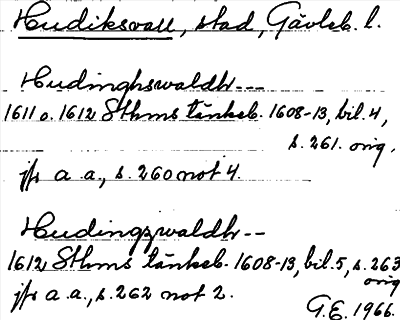 Hudiksvall, stad, Gävleb. l.
Hudinghswaldh---
1611 o. 1612 Sthms tänkeb. 1608-13, bil. 4,
s. 261. orig.
jfr a.a., s. 260 not 4.
Hudingzwaldh--
1612 Sthms tänkeb. 1608-13, bil. 5, s. 263
orig
jfr a.a., s. 262 not 2.
G.E. 1966.